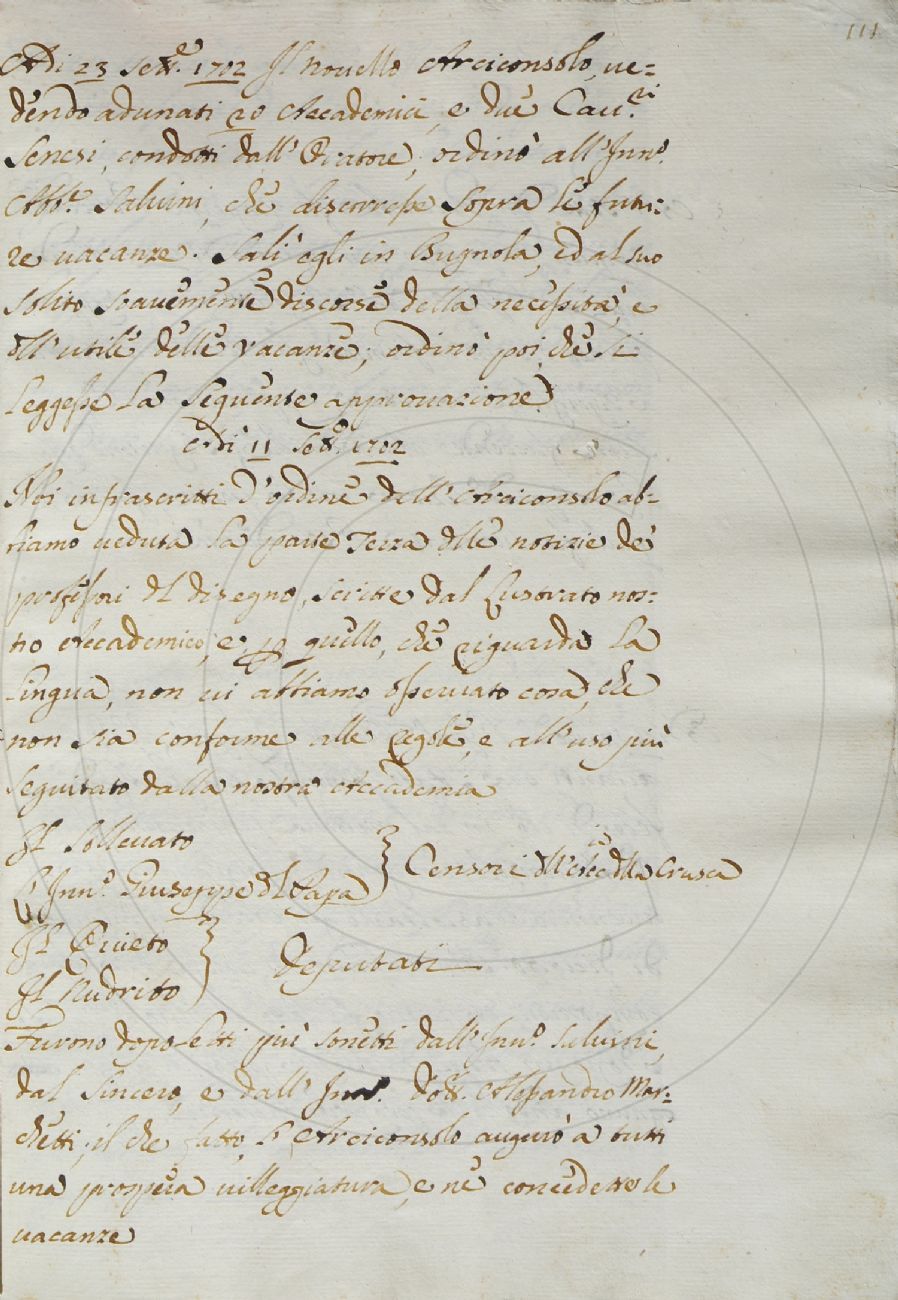 111
Adi 23 Sett.e 1702 Il novello Arciconsolo, ve=
dendo adunati 20 Accademici, e due Cav.ri
Senesi, condotti dall' Oratore, ordinò all' Inn.o
Abb.e Salvini, che discorresse sopra le futu:
re vacanze. Salì egli in Bugnola, ed al suo
solito soavemente discorse della necessità, e
dll' utile delle vacanze; ordinò poi, che si
leggesse la seguente approvazione
Adi 11 Sett.e 1702
Noi infrascritti d' ordine dell' Arciconsolo ab=
biamo veduta la parte Terza dlle notizie de'
professori dl disegno, scritte dal Lustrato nos:
tro Accademico, e p quello, che riguarda la
lingua, non vi abbiamo osservato cosa, che
non sia conforme alle regole, e all' uso più
seguitato dalla nostra Accademia
Il Sollevato
L' Inn.o Giuseppe dl Papa } Censori dll' Acc.ia dlla Crusca
Il Quieto
Il Nudrito } Deputati
Furono dopo letti più sonetti dall' Inn.o Salvini,
dal Sincero, e dall' Inn.o Dott. Alessandro Mar=
chetti; il che fatto, l' Arciconsolo augurò a tutti
una prospera villeggiatura, e ne concedette le
vacanze